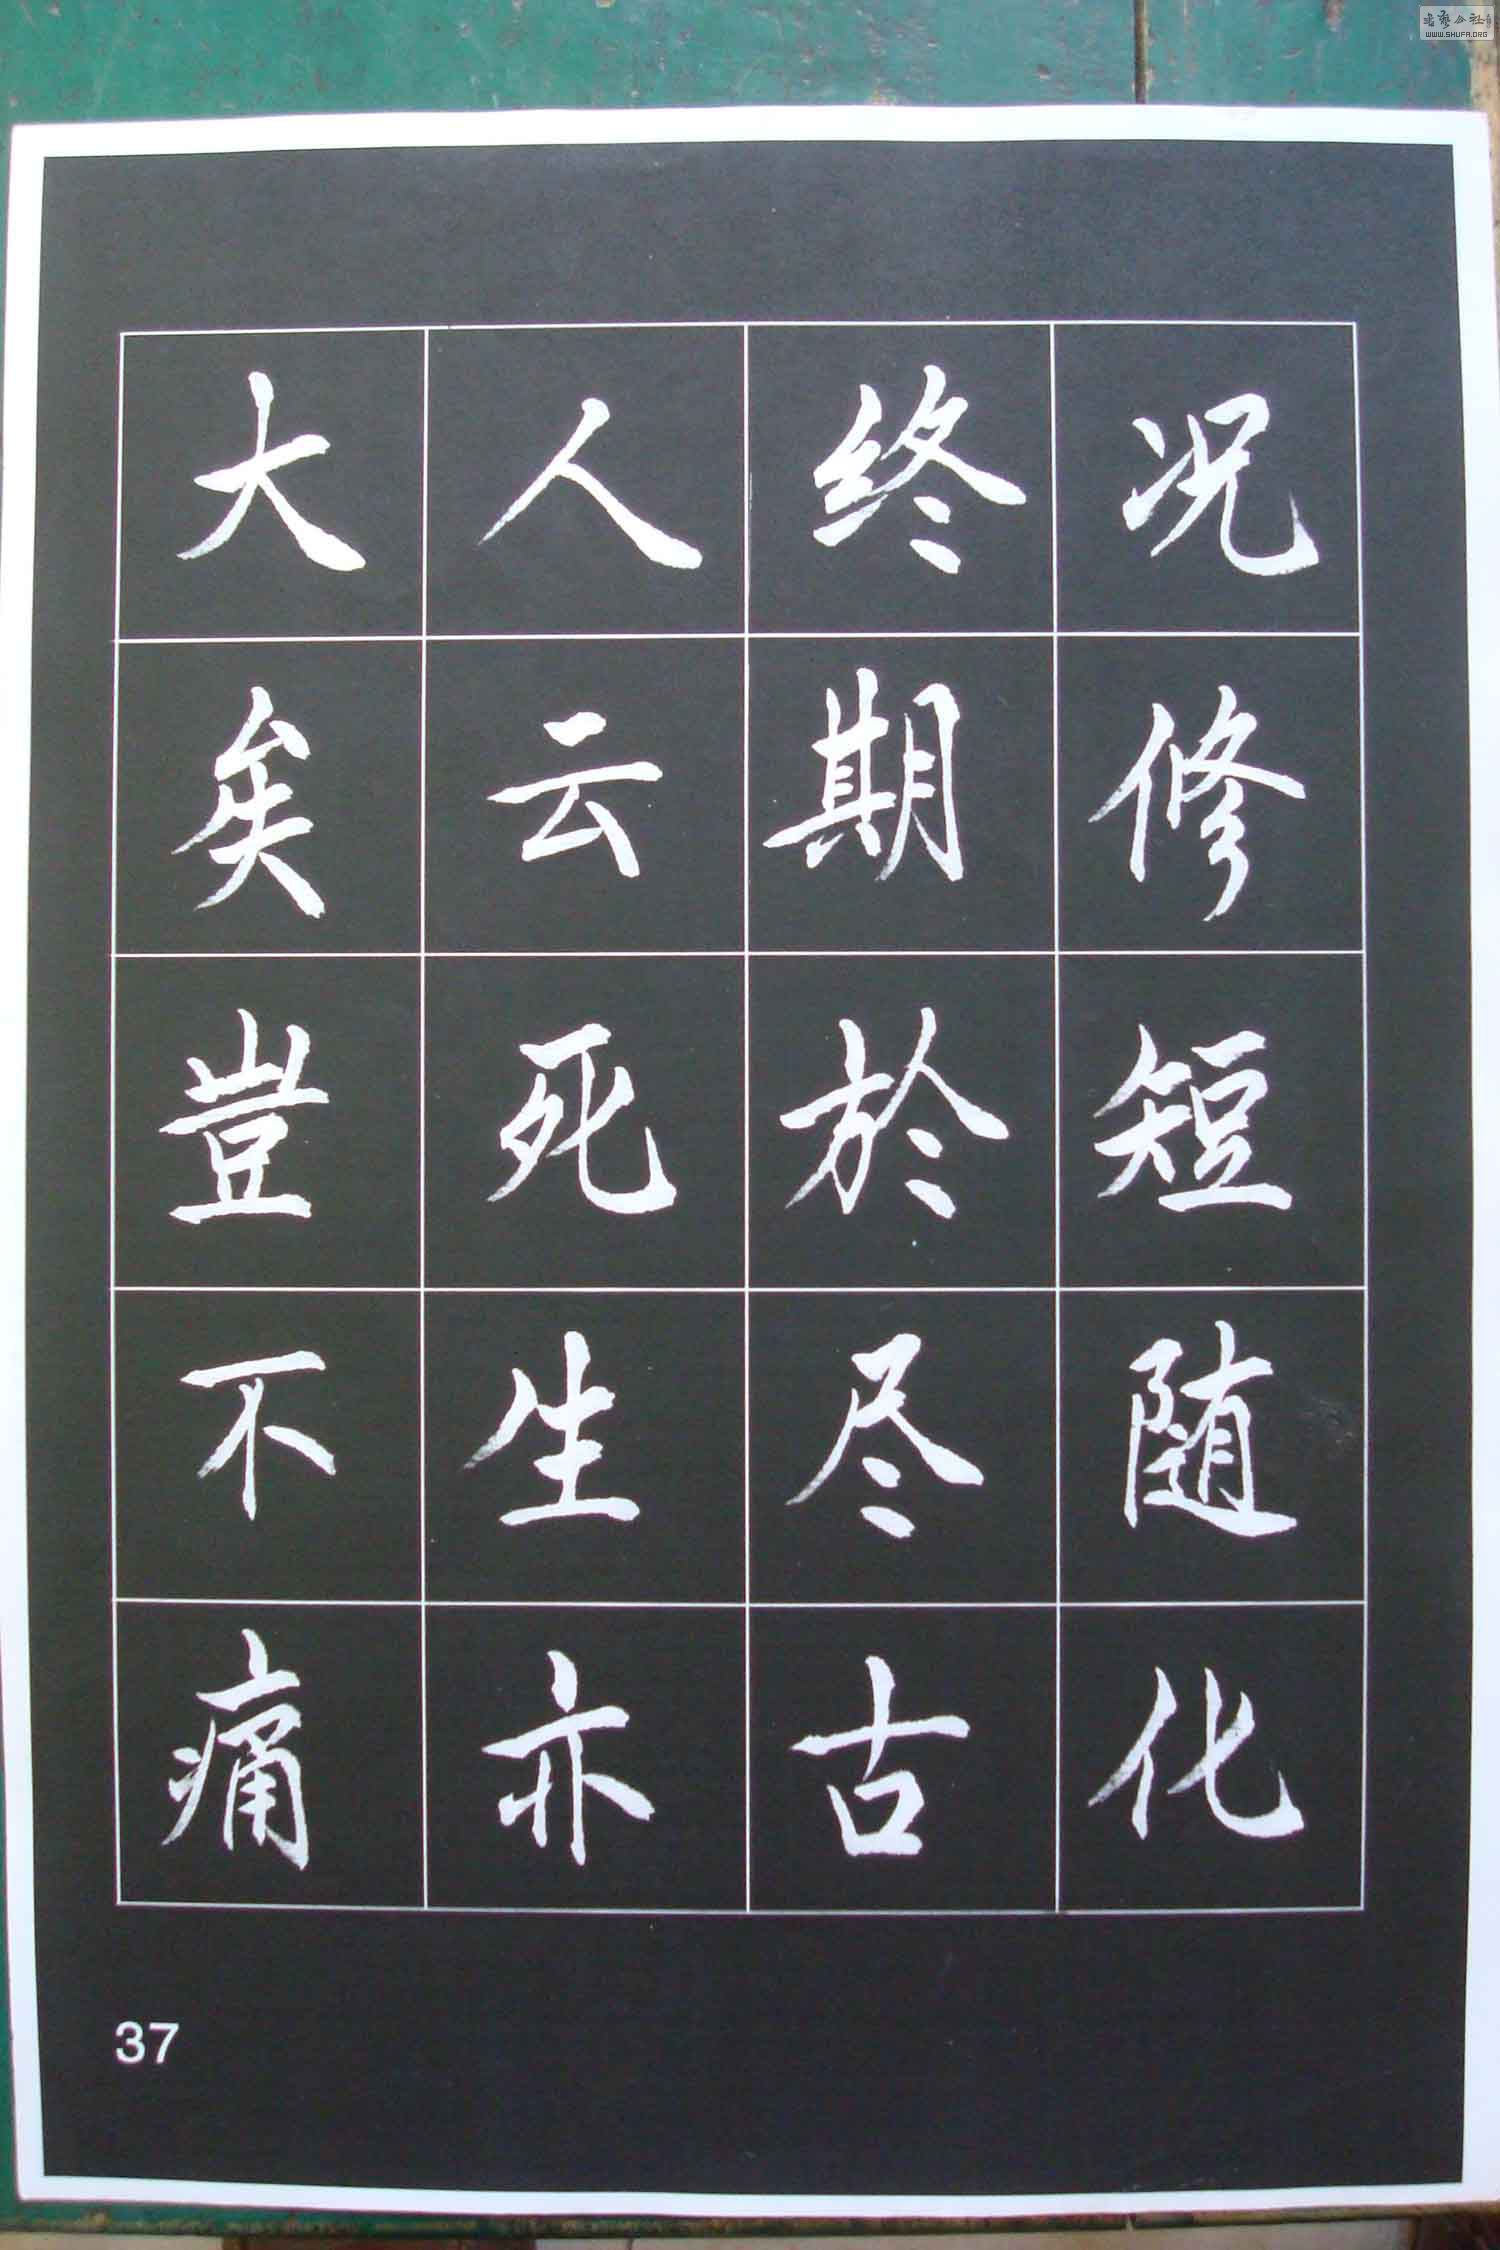 况修短随化
终期於尽古
人云死生亦
大矣豈不痛
37
WWW.SHUFA.ORG